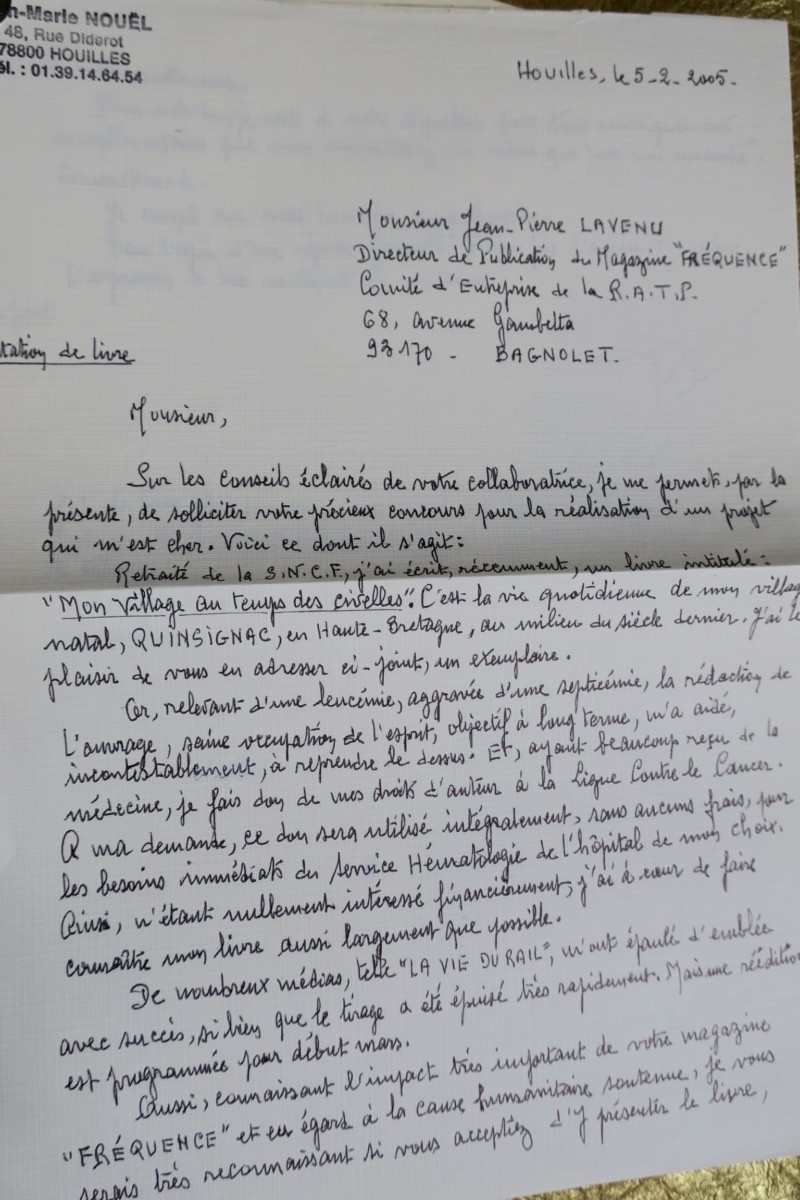 n-Marie NOUËL
48, Rue Diderot
78800 HOUILLES
él. : 01.39.14.64.54
Houilles, le 5-2-2005-
Monsieur Jean-Pierre LAVENU
Directeur de Publication du Magazine "FRÉQUENCE"
Comité d'Entreprise de la R.A.T.P.
68, avenue Gambetta
93170 - BAGNOLET.
tation de livre
Monsieur,
Sur les conseils éclairés de votre collaboratrice, je me permets, par la
présente, de solliciter votre précieux concours pour la réalisation d'un projet
qui m'est cher. Voici ce dont il s'agit :
Retraité de la S.N.C.F., j'ai écrit, récemment, un livre intitulé :
"Mon Village au temps des civelles". C'est la vie quotidienne de mon villag
natal, QUINSIGNAC, en Haute-Bretagne, au milieu du siècle dernier. J'ai le
plaisir de vous en adresser ci-joint, un exemplaire.
Or, relevant d'une leucémie, aggravée d'une septicémie, la rédaction de
l'ouvrage, saine occupation de l'esprit, objectif à long terme, m'a aidé,
incontestablement, à reprendre le dessus. Et, ayant beaucoup reçu de la
médecine, je fais don de mes droits d'auteur à la Ligue Contre le Cancer.
A ma demande, ce don sera utilisé intégralement, sans aucuns frais, pour
les besoins immédiats du Service Hématologie de l'hôpital de mon choix.
Ainsi, n'étant nullement intéressé financièrement, j'ai à cœur de faire
connaître mon livre aussi largement que possible.
De nombreux médias, telle "LA VIE DU RAIL", m'ont épaulé d'emblée
avec succès, si bien que le tirage a été épuisé très rapidement. Mais une réédition
est programmée pour début mars.
Aussi, connaissant l'impact très important de votre magazine
"FRÉQUENCE" et eu égard à la cause humanitaire soutenue, je vous
serais très reconnaissant si vous acceptiez d'y présenter le livre,